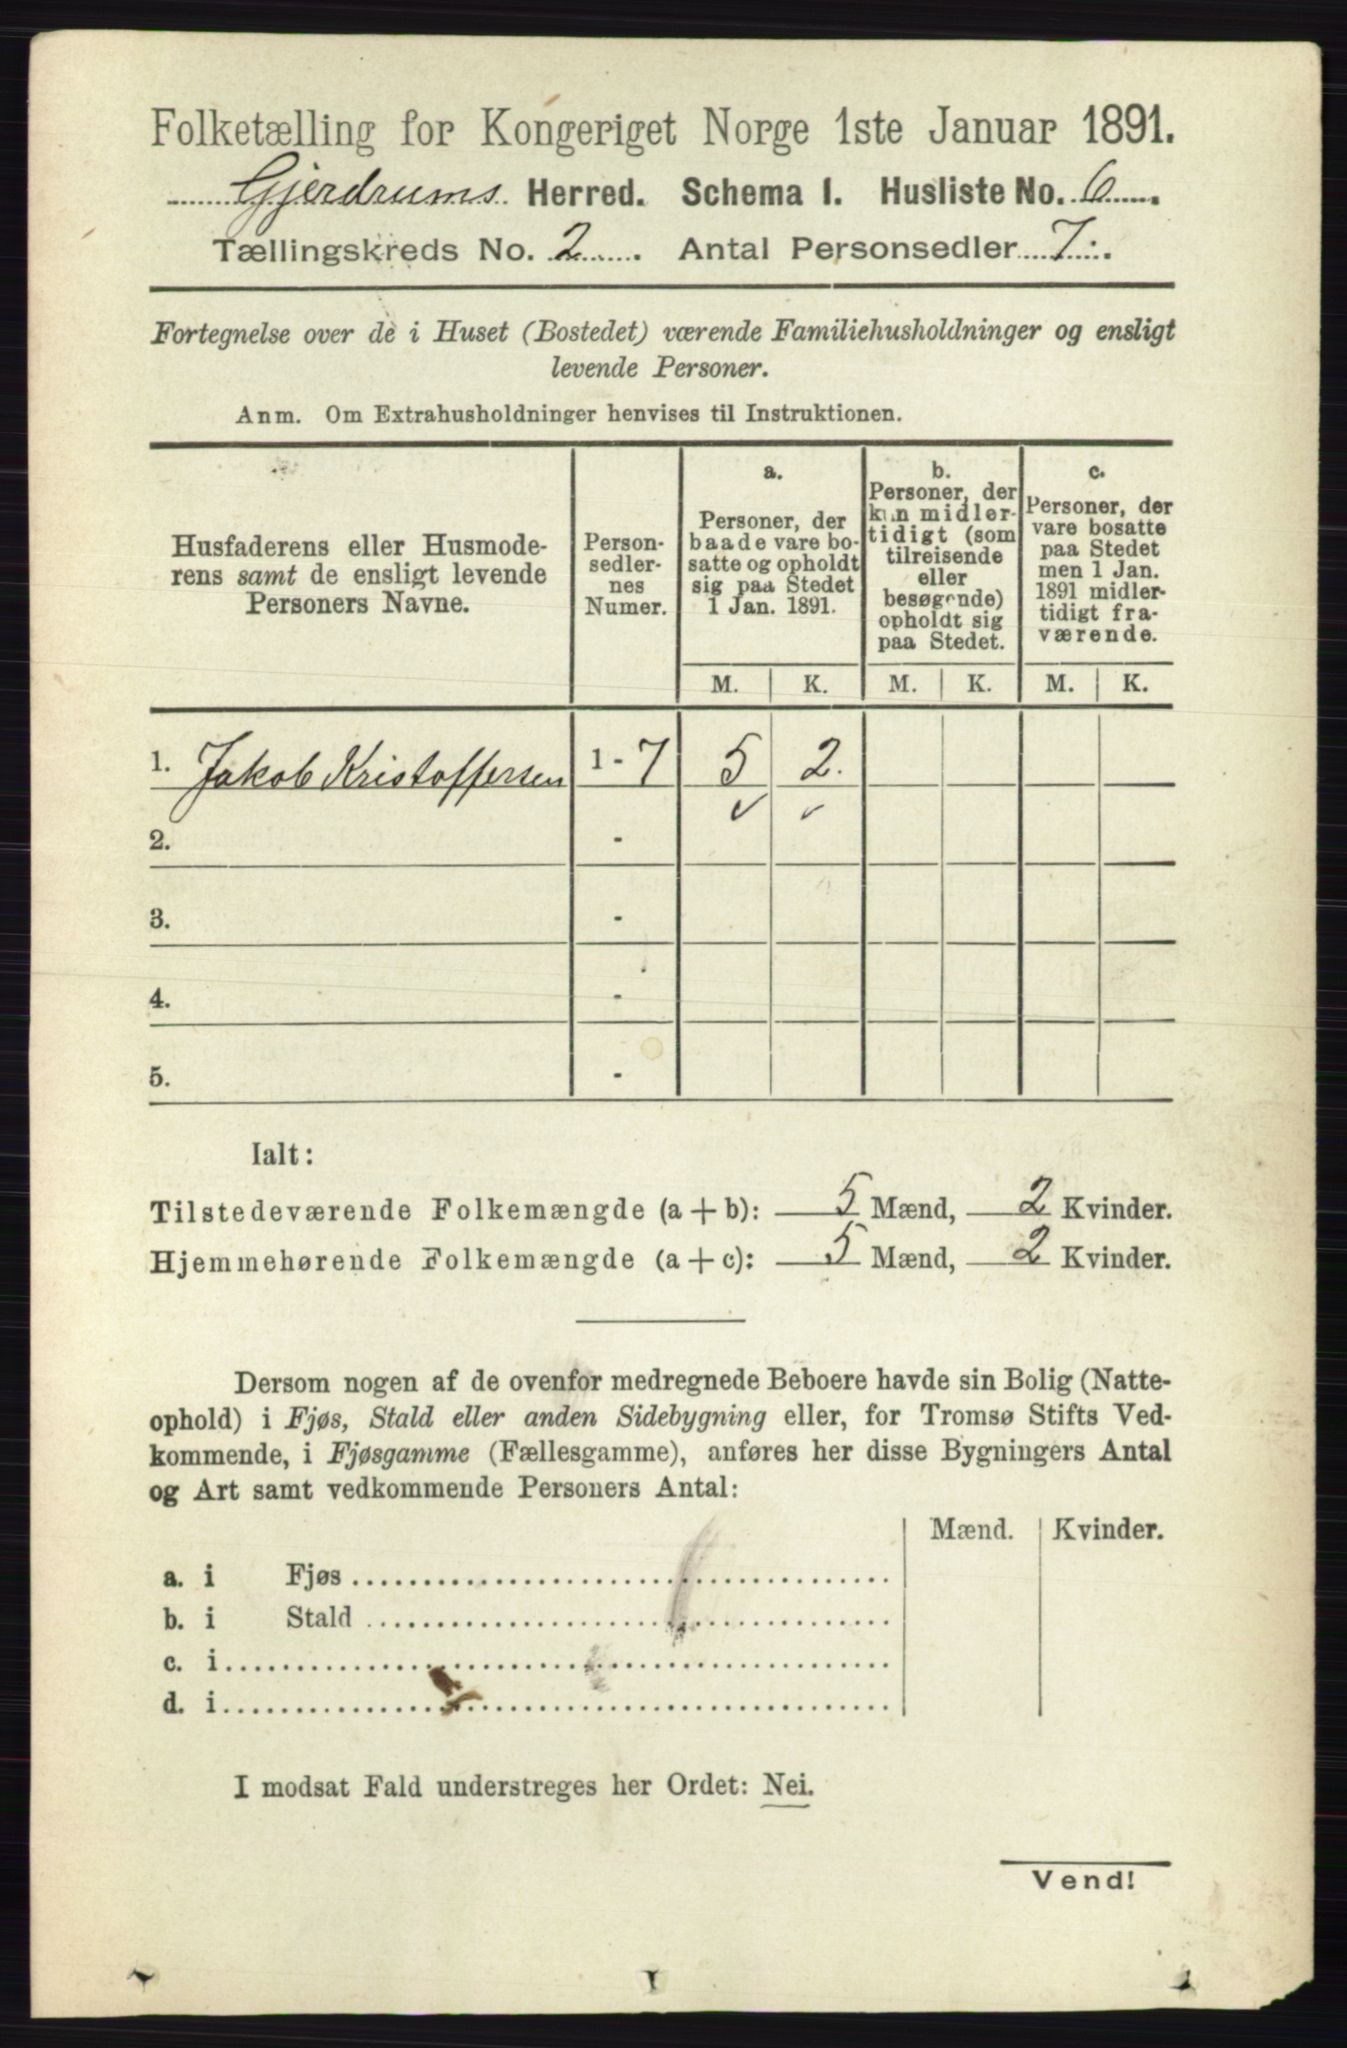 Folketælling for Kongeriget Norge 1ste Januar 1891.
Gjerdrums Herred. Schema I. Husliste No. 6
Tællingskreds No. 2. Antal Personsedler 7.
Fortegnelse over de i Huset (Bostedet) værende Familiehusholdninger og ensligt
levende Personer.
Anm. Om Extrahusholdninger henvises til Instruktionen.
Husfaderens eller Husmode-
rens samt de ensligt levende
Personers Navne.
Person-
sedler-
nes
Numer.
a.
Personer, der
baade vare bo-
satte og opholdt
sig paa Stedet
1 Jan. 1891.
b.
Personer, der
kun midler-
tidigt (som
tilreisende
eller
besøgende)
opholdt sig
paa Stedet.
c.
Personer, der
vare bosatte
paa Stedet
men 1 Jan.
1891 midler-
tidigt fra-
værende.
M. K. M. K. M. K.
1. Jakob Kristoffersen 1 - 7 5 2.
✓ ✓
2. -
3. -
4. -
5. -
Ialt:
Tilstedeværende Folkemængde (a + b): 5 Mænd, 2 Kvinder.
Hjemmehørende Folkemængde (a + c): 5 Mænd, 2 Kvinder.
Dersom nogen af de ovenfor medregnede Beboere havde sin Bolig (Natte-
ophold) i Fjøs, Stald eller anden Sidebygning eller, for Tromsø Stifts Ved-
kommende, i Fjøsgamme (Fællesgamme), anføres her disse Bygningers Antal
og Art samt vedkommende Personers Antal:
Mænd. Kvinder.
a. i Fjøs
b. i Stald
c. i
d. i
I modsat Fald understreges her Ordet: Nei.
Vend!